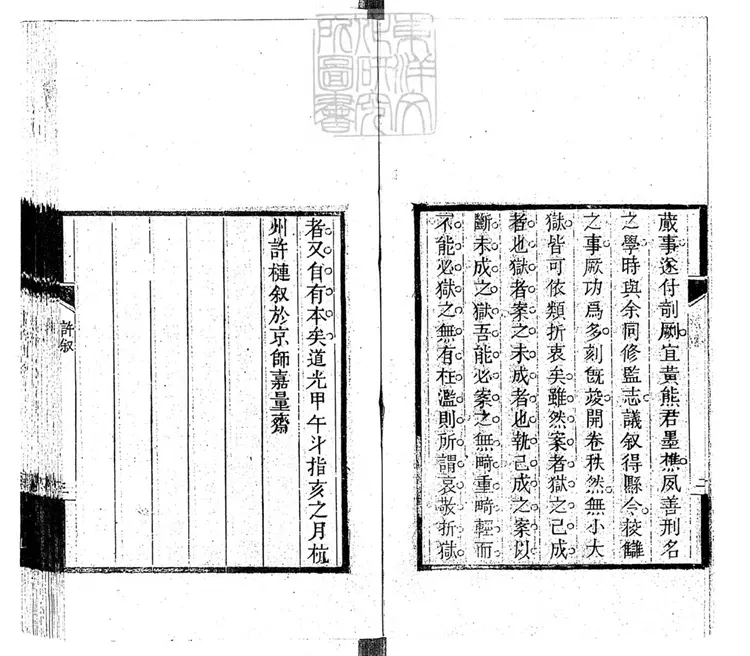 東洋文
化研究
所圖書
蕆事遂付剞劂宜黃熊君墨樵夙善刑名
之學時與余同修監志議叙得縣令校讎
之事厥功爲多刻旣竣開卷秩然無小大
獄皆可依類折衷矣雖然案者獄之已成
者也獄者案之未成者也執已成之案以
斷未成之獄吾能必案之無畸重畸輕而
不能必獄之無有枉濫則所謂哀敬折獄
二
者又自有本矣道光甲午斗指亥之月杭
州許槤叙於京師嘉量齋
許叙
三